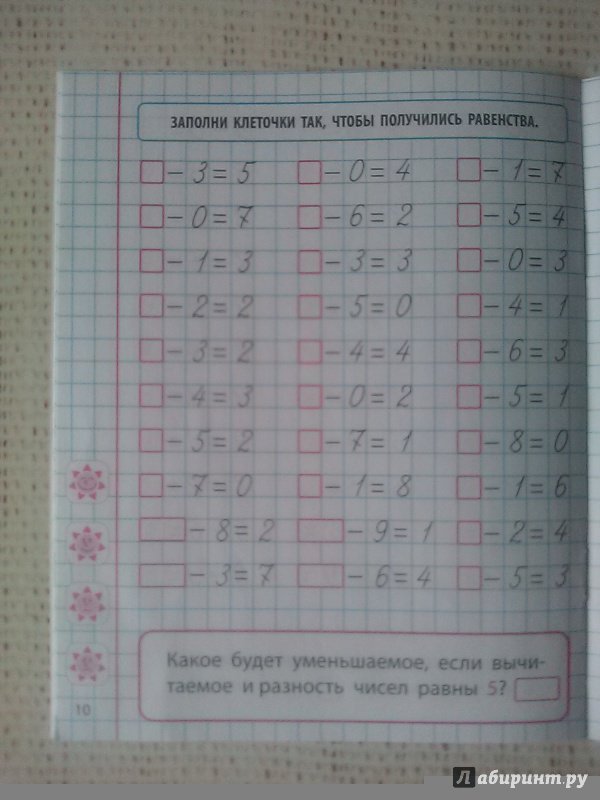 ЗАПОЛНИ КЛЕТОЧКИ ТАК, ЧТОБЫ ПОЛУЧИЛИСЬ РАВЕНСТВА.
□ - 3 = 5 □ - 0 = 4 □ - 1 = 7
□ - 0 = 7 □ - 6 = 2 □ - 5 = 4
□ - 1 = 3 □ - 3 = 3 □ - 0 = 3
□ - 2 = 2 □ - 5 = 0 □ - 4 = 1
□ - 3 = 2 □ - 4 = 4 □ - 6 = 3
□ - 4 = 3 □ - 0 = 2 □ - 5 = 1
□ - 5 = 2 □ - 7 = 1 □ - 8 = 0
□ - 7 = 0 □ - 1 = 8 □ - 1 = 6
□ - 8 = 2 □ - 9 = 1 □ - 2 = 4
□ - 3 = 7 □ - 6 = 4 □ - 5 = 3
Какое будет уменьшаемое, если вычи-
таемое и разность чисел равны 5? □
10
Лабиринт.ру